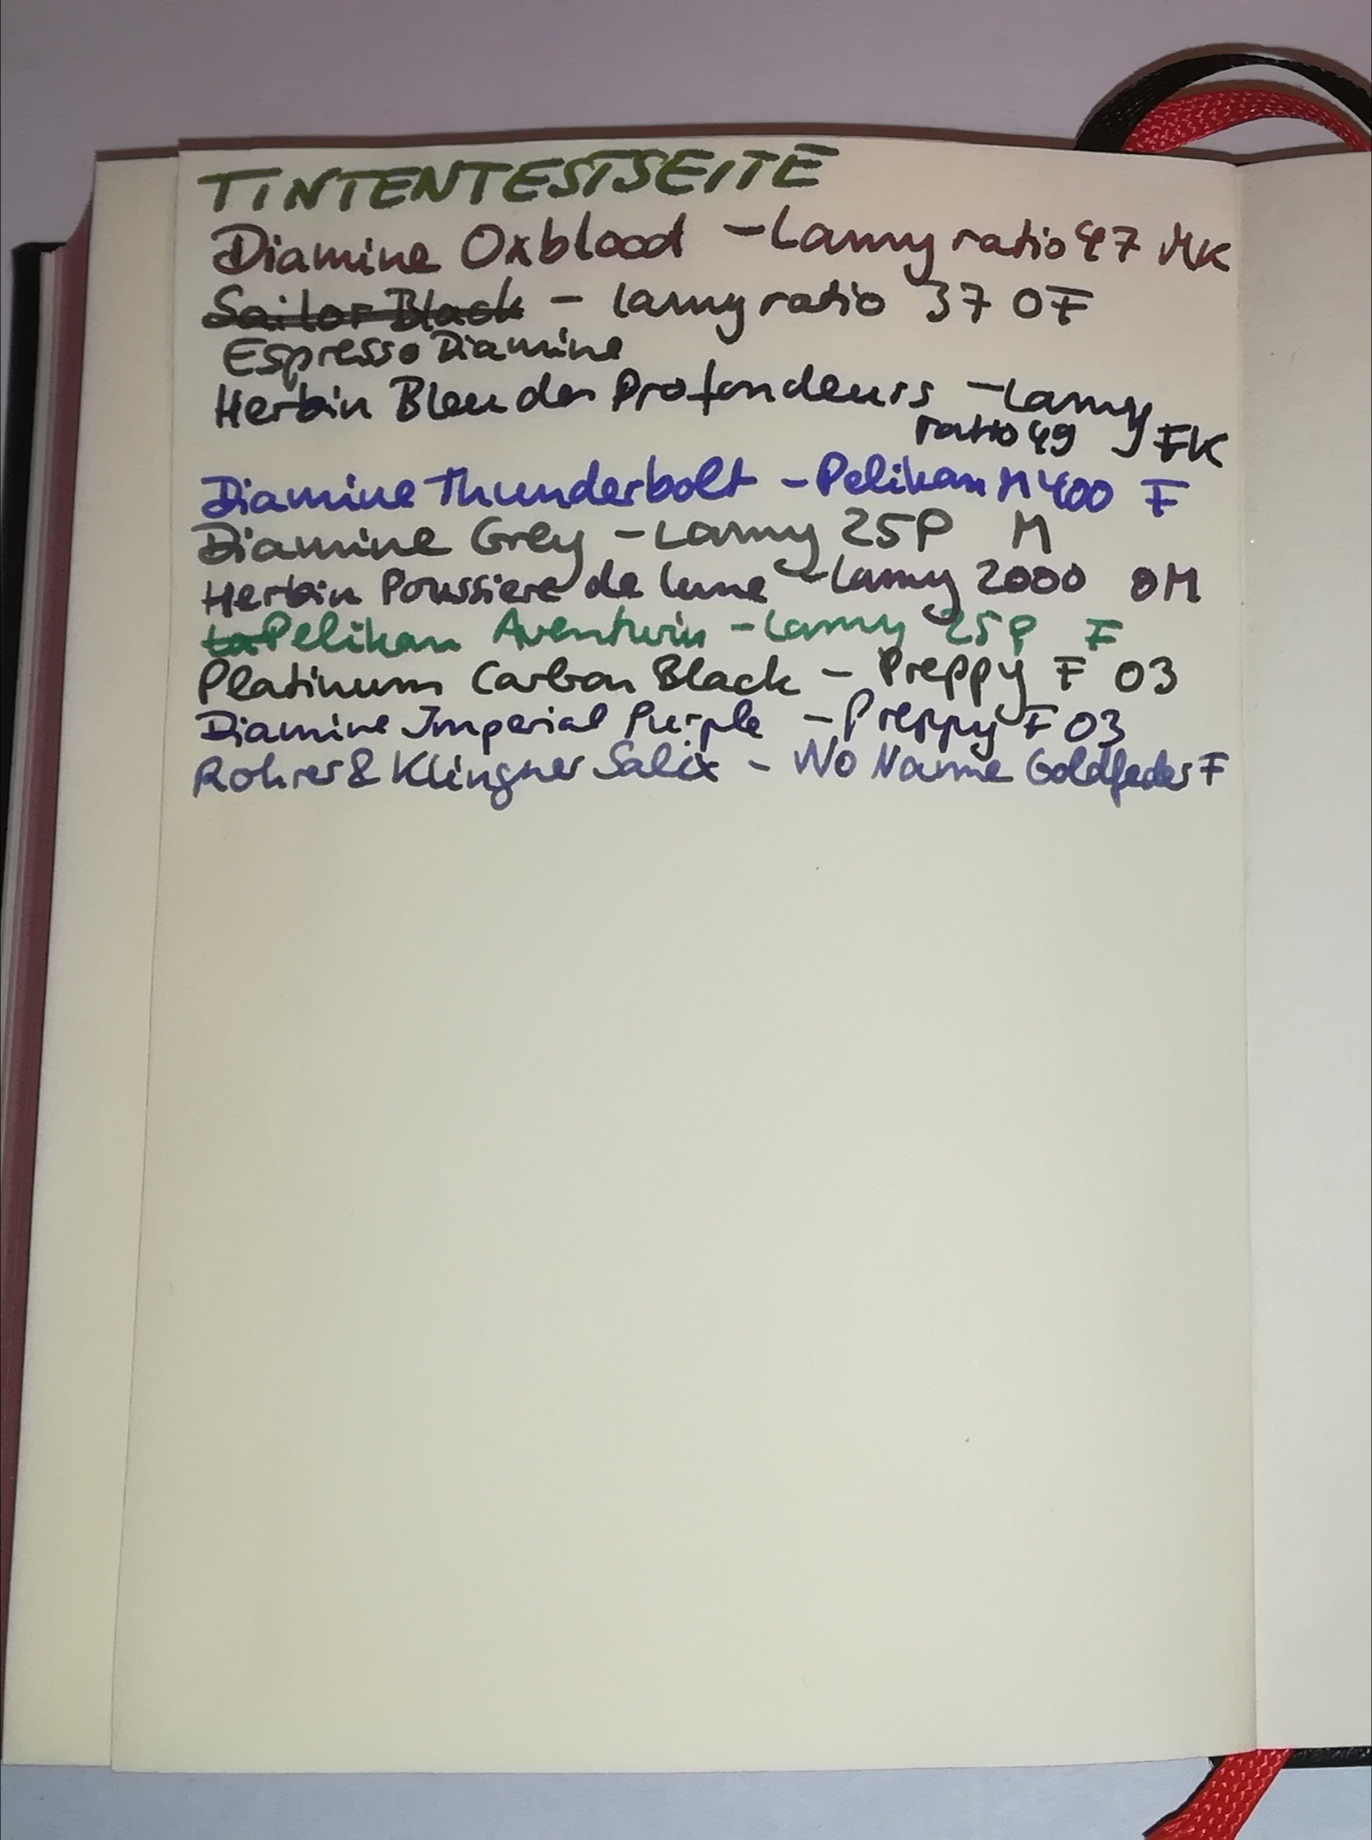 TINTENTESTSEITE
Diamine Oxblood - Lamy ratio 47 MK
Sailor Black - Lamy ratio 37 OF
Espresso Diamine
Herbin Bleu des Profondeurs - Lamy
ratio 49 FK
Diamine Thunderbolt - Pelikan M400 F
Diamine Grey - Lamy 25P M
Herbin Poussiere de lune - Lamy 2000 OM
La Pelikan Aventurin - Lamy 25P F
Platinum Carbon Black - Preppy F 03
Diamine Imperial Purple - Preppy F 03
Rohrer & Klingner Salix - No Name Goldfeder F